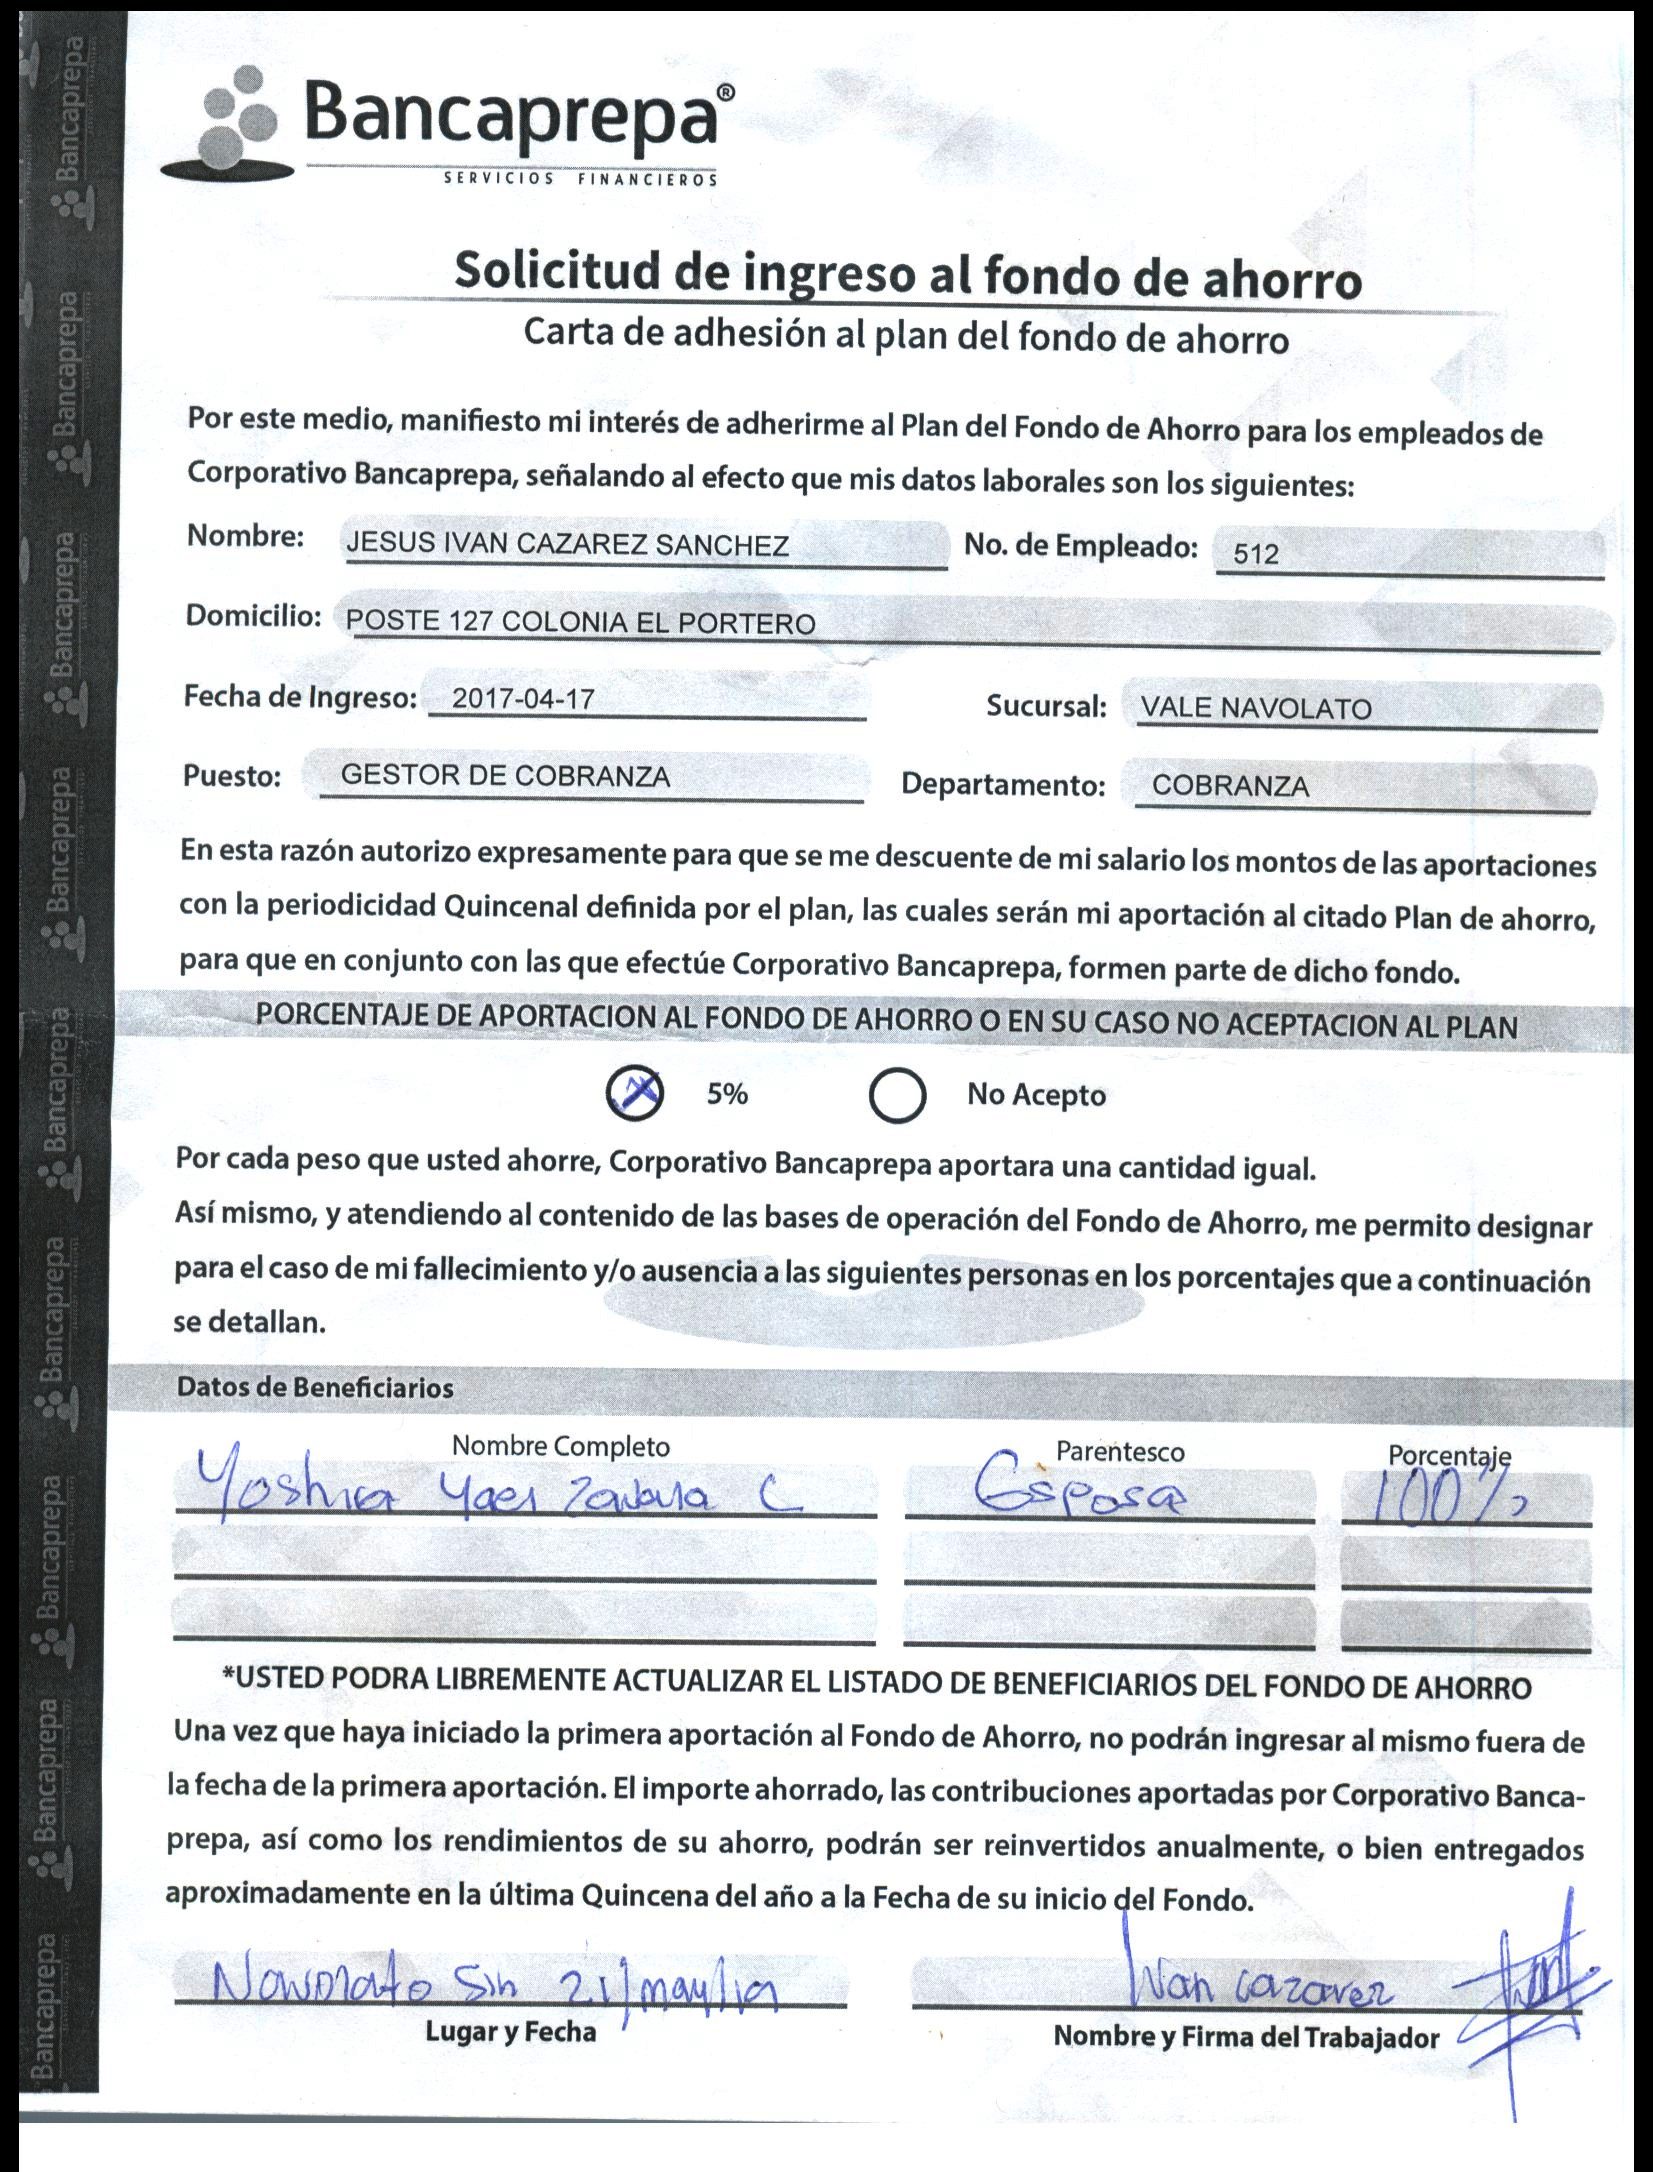 Bancaprepa®
SERVICIOS FINANCIEROS
Solicitud de ingreso al fondo de ahorro
Carta de adhesión al plan del fondo de ahorro
Por este medio, manifiesto mi interés de adherirme al Plan del Fondo de Ahorro para los empleados de
Corporativo Bancaprepa, señalando al efecto que mis datos laborales son los siguientes:
Nombre: JESUS IVAN CAZAREZ SANCHEZ No. de Empleado: 512
Domicilio: POSTE 127 COLONIA EL PORTERO
Fecha de Ingreso: 2017-04-17 Sucursal: VALE NAVOLATO
Puesto: GESTOR DE COBRANZA Departamento: COBRANZA
En esta razón autorizo expresamente para que se me descuente de mi salario los montos de las aportaciones
con la periodicidad Quincenal definida por el plan, las cuales serán mi aportación al citado Plan de ahorro,
para que en conjunto con las que efectúe Corporativo Bancaprepa, formen parte de dicho fondo.
PORCENTAJE DE APORTACION AL FONDO DE AHORRO O EN SU CASO NO ACEPTACION AL PLAN
X 5% No Acepto
Por cada peso que usted ahorre, Corporativo Bancaprepa aportara una cantidad igual.
Así mismo, y atendiendo al contenido de las bases de operación del Fondo de Ahorro, me permito designar
para el caso de mi fallecimiento y/o ausencia a las siguientes personas en los porcentajes que a continuación
se detallan.
Datos de Beneficiarios
Nombre Completo Parentesco Porcentaje
Yoshira Yaei C Esposa 100%
*USTED PODRA LIBREMENTE ACTUALIZAR EL LISTADO DE BENEFICIARIOS DEL FONDO DE AHORRO
Una vez que haya iniciado la primera aportación al Fondo de Ahorro, no podrán ingresar al mismo fuera de
la fecha de la primera aportación. El importe ahorrado, las contribuciones aportadas por Corporativo Banca-
prepa, así como los rendimientos de su ahorro, podrán ser reinvertidos anualmente, o bien entregados
aproximadamente en la última Quincena del año a la Fecha de su inicio del Fondo.
Navolato Sin 21/may/ Ivan Cazarez
Lugar y Fecha Nombre y Firma del Trabajador